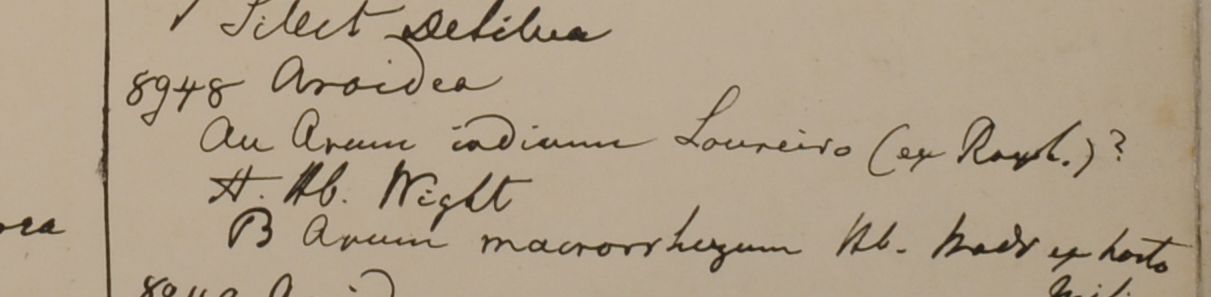 Silect Desilva
8948 Aroidea
An Arum indicum Loureiro (ex Roxb.)?
H. Hb. Wight
B Arum macrorrhizum Hb. Madr ex horto
8949